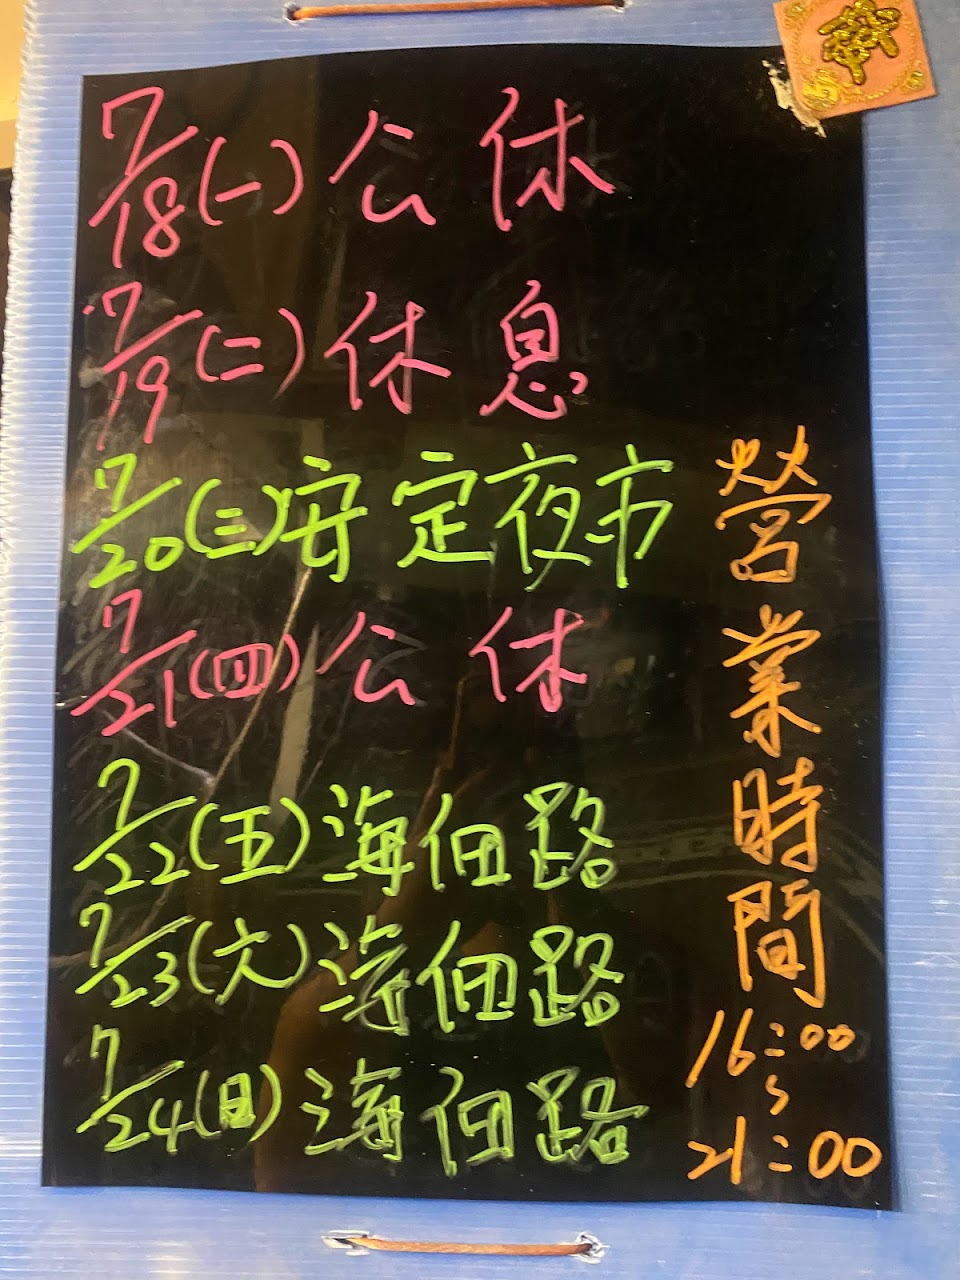 7/18(一)公休
7/19(二)休息
7/20(三)安定夜市
7/21(四)公休
7/22(五)海佃路
7/23(六)海佃路
7/24(日)海佃路
營業時間
16:00
~
21:00